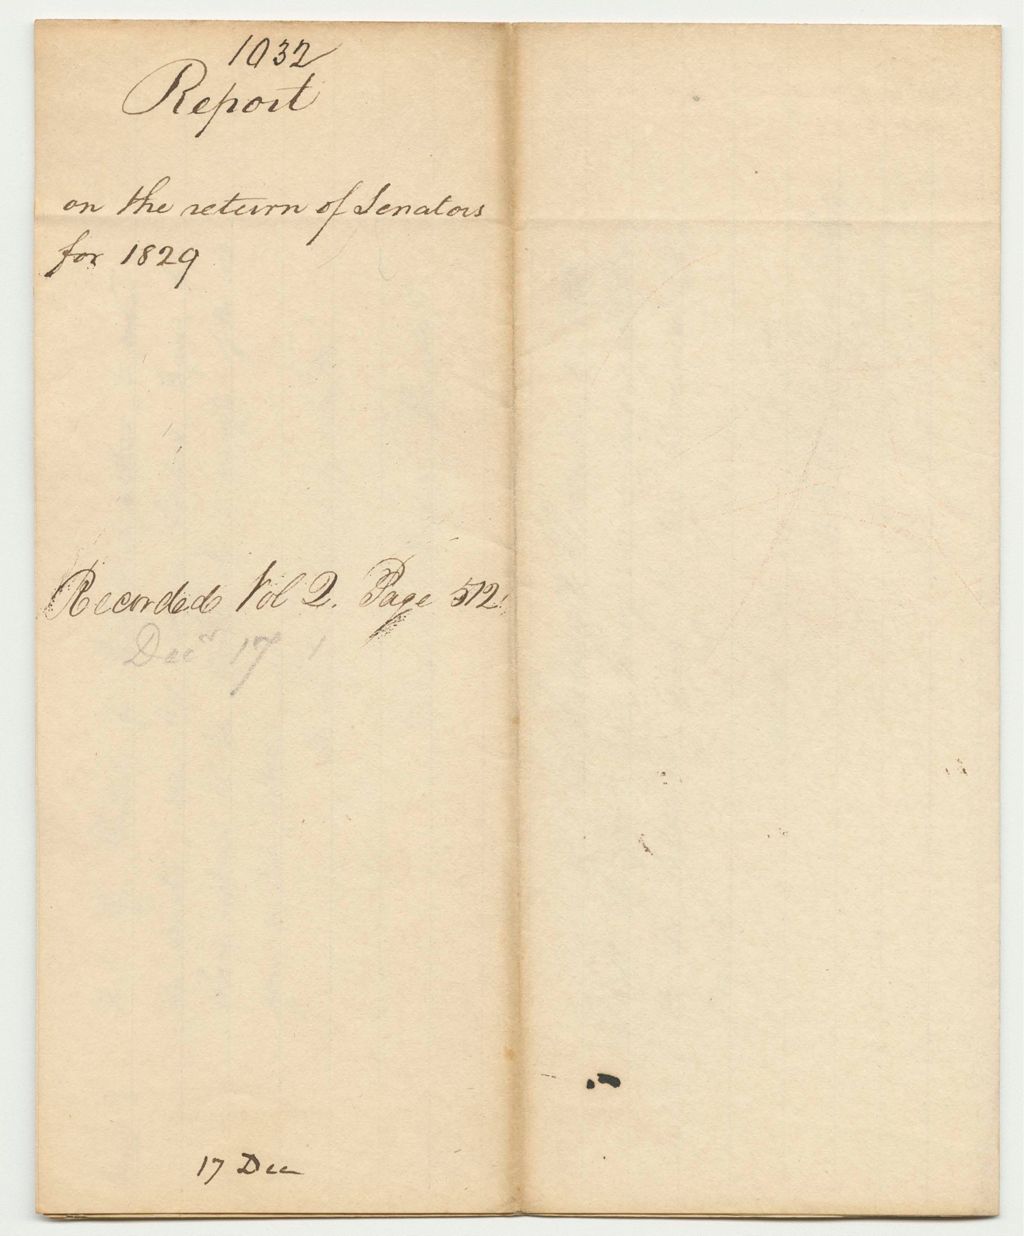 1032
Report
on the return of Senators
for 1829
Recorded Vol 2. Page 512
Decr 17
17 Dec